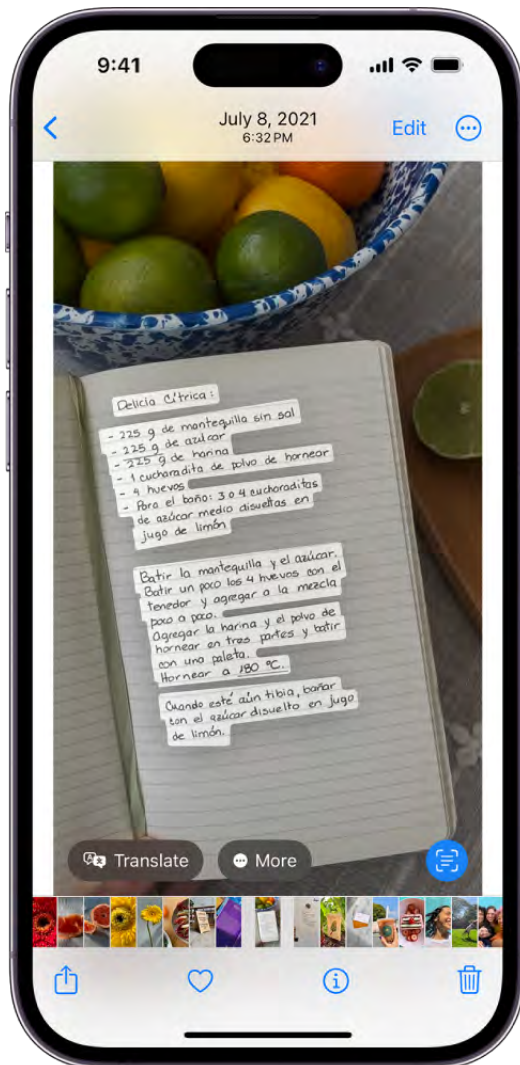 9:41
July 8, 2021
6:32 PM
Edit
Delicia Cítrica:
- 225 g de mantequilla sin sal
- 225 g de azúlcar
- 225 g de harina
- 1 cucharadita de polvo de hornear
- 4 huevos
- Para el baño: 3 o 4 cucharaditas
de azúcar medio disueltas en
jugo de limón
Batir la mantequilla y el azúcar.
Batir un poco los 4 huevos con el
tenedor y agregar a la mezcla
poco a poco.
Agregar la harina y el polvo de
hornear en tres partes y batir
con una paleta.
Hornear a 180 °C.
Cuando esté aún tibia, bañar
con el azúcar disuelto en jugo
de limón.
Translate
More